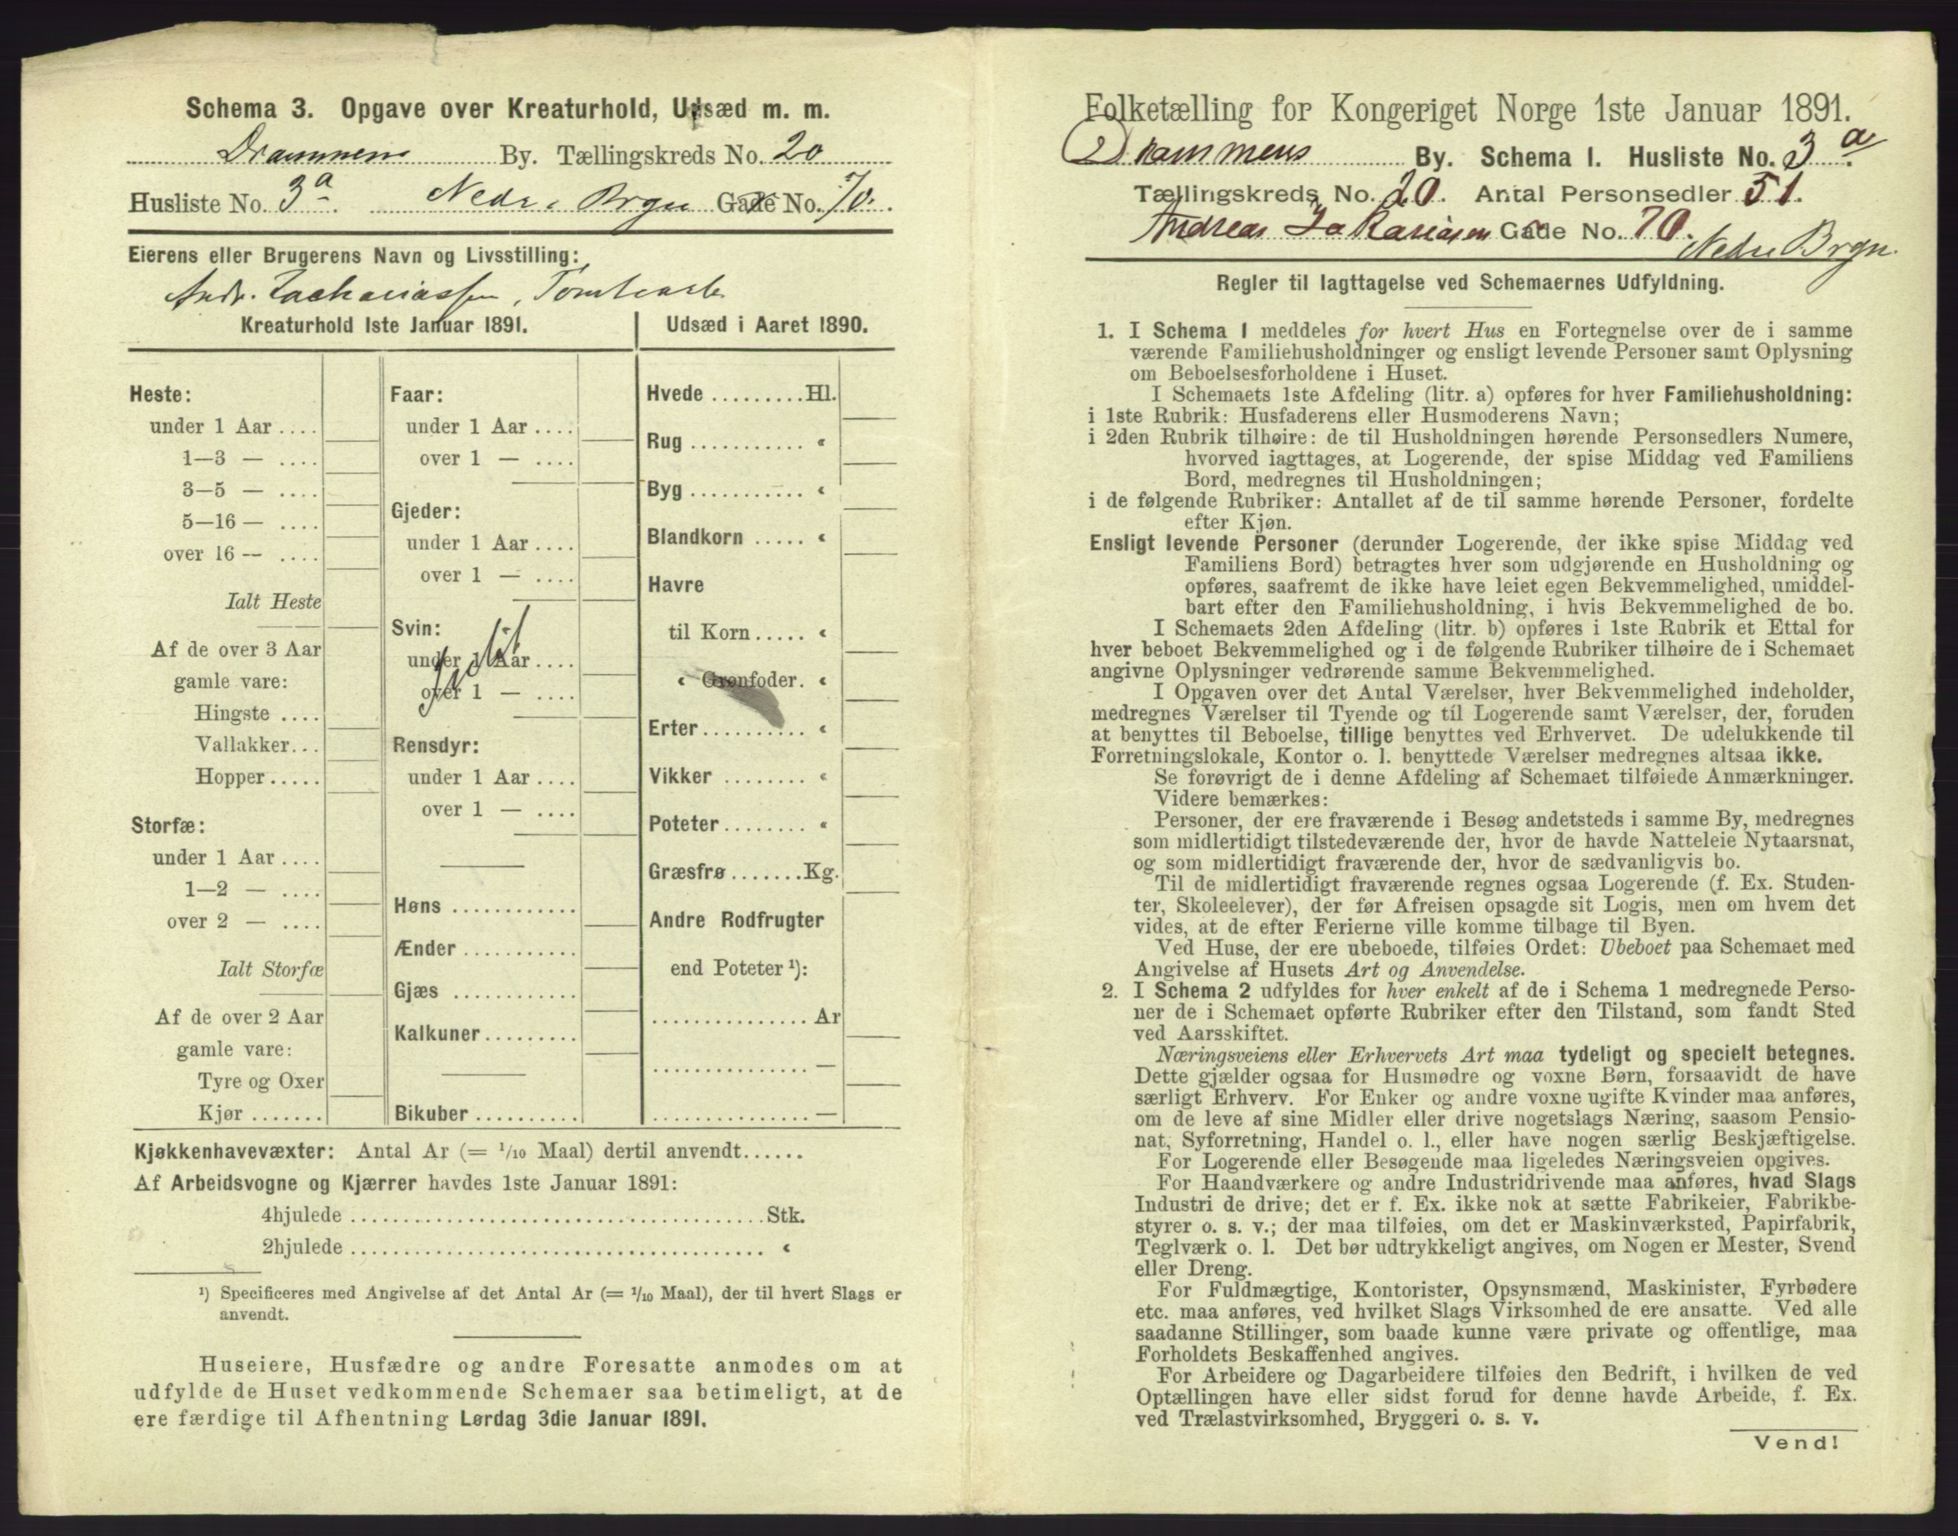 Schema 3. Opgave over Kreaturhold, Udsæd m. m.
Drammens By. Tællingskreds No. 20
Husliste No. 3a. Nedre Brgn Gade No. 70.
Eierens eller Brugerens Navn og Livsstilling:
Andr. Zachariassen,
Kreaturhold 1ste Januar 1891.
Heste:
under 1 Aar ....
1—3 — ....
3—5 — ....
5—16 — ....
over 16 — ....
Ialt Heste
Af de over 3 Aar
gamle vare:
Hingste ....
Vallakker...
Hopper.....
Storfæ:
under 1 Aar ....
1—2 — ....
over 2 — ....
Ialt Storfæ
Af de over 2 Aar
gamle vare:
Tyre og Oxer
Kjør .......
Faar:
under 1 Aar ....
over 1 — ....
Gjeder:
under 1 Aar ....
over 1 — ....
Svin:
under 1 Aar ....
over 1 — ....
Rensdyr:
under 1 Aar ....
over 1 — ....
Høns ............
Ænder ...........
Gjæs ............
Kalkuner.........
Bikuber ..........
Udsæd i Aaret 1890.
Hvede .........Hl.
Rug ........... „
Byg ........... „
Blandkorn ..... „
Havre
til Korn ..... „
„ Grønfoder. „
Erter.......... „
Vikker ........ „
Poteter........ „
Græsfrø.......Kg.
Andre Rodfrugter
end Poteter ¹):
............... Ar
............... —
............... —
Kjøkkenhavevæxter: Antal Ar (= 1/10 Maal) dertil anvendt......
Af Arbeidsvogne og Kjærrer havdes 1ste Januar 1891:
4hjulede ........................................Stk.
2hjulede ........................................ „
¹) Specificeres med Angivelse af det Antal Ar (= 1/10 Maal), der til hvert Slags er
anvendt.
Huseiere, Husfædre og andre Foresatte anmodes om at
udfylde de Huset vedkommende Schemaer saa betimeligt, at de
ere færdige til Afhentning Lørdag 3die Januar 1891.
Folketælling for Kongeriget Norge 1ste Januar 1891.
Drammens By. Schema 1. Husliste No. 3a
Tællingskreds No. 20. Antal Personsedler 51.
Andreas Zakariasen Gade No. 70.
Nedre Brgn.
Regler til Iagttagelse ved Schemaernes Udfyldning.
1. I Schema 1 meddeles for hvert Hus en Fortegnelse over de i samme
værende Familiehusholdninger og ensligt levende Personer samt Oplysning
om Beboelsesforholdene i Huset.
I Schemaets 1ste Afdeling (litr. a) opføres for hver Familiehusholdning:
i 1ste Rubrik: Husfaderens eller Husmoderens Navn;
i 2den Rubrik tilhøire: de til Husholdningen hørende Personsedlers Numere,
hvorved iagttages, at Logerende, der spise Middag ved Familiens
Bord, medregnes til Husholdningen;
i de følgende Rubriker: Antallet af de til samme hørende Personer, fordelte
efter Kjøn.
Ensligt levende Personer (derunder Logerende, der ikke spise Middag ved
Familiens Bord) betragtes hver som udgjørende en Husholdning og
opføres, saafremt de ikke have leiet egen Bekvemmelighed, umiddel-
bart efter den Familiehusholdning, i hvis Bekvemmelighed de bo.
I Schemaets 2den Afdeling (litr. b) opføres i 1ste Rubrik et Ettal for
hver beboet Bekvemmelighed og i de følgende Rubriker tilhøire de i Schemaet
angivne Oplysninger vedrørende samme Bekvemmelighed.
I Opgaven over det Antal Værelser, hver Bekvemmelighed indeholder,
medregnes Værelser til Tyende og til Logerende samt Værelser, der, foruden
at benyttes til Beboelse, tillige benyttes ved Erhvervet. De udelukkende til
Forretningslokale, Kontor o. l. benyttede Værelser medregnes altsaa ikke.
Se forøvrigt de i denne Afdeling af Schemaet tilføiede Anmærkninger.
Videre bemærkes:
Personer, der ere fraværende i Besøg andetsteds i samme By, medregnes
som midlertidigt tilstedeværende der, hvor de havde Natteleie Nytaarsnat,
og som midlertidigt fraværende der, hvor de sædvanligvis bo.
Til de midlertidigt fraværende regnes ogsaa Logerende (f. Ex. Studen-
ter, Skoleelever), der før Afreisen opsagde sit Logis, men om hvem det
vides, at de efter Ferierne ville komme tilbage til Byen.
Ved Huse, der ere ubeboede, tilføies Ordet: Ubeboet paa Schemaet med
Angivelse af Husets Art og Anvendelse.
2. I Schema 2 udfyldes for hver enkelt af de i Schema 1 medregnede Perso-
ner de i Schemaet opførte Rubriker efter den Tilstand, som fandt Sted
ved Aarsskiftet.
Næringsveiens eller Erhvervets Art maa tydeligt og specielt betegnes.
Dette gjælder ogsaa for Husmødre og voxne Børn, forsaavidt de have
særligt Erhverv. For Enker og andre voxne ugifte Kvinder maa anføres,
om de leve af sine Midler eller drive nogetslags Næring, saasom Pensio-
nat, Syforretning, Handel o. l., eller have nogen særlig Beskjæftigelse.
For Logerende eller Besøgende maa ligeledes Næringsveien opgives.
For Haandværkere og andre Industridrivende maa anføres, hvad Slags
Industri de drive; det er f. Ex. ikke nok at sætte Fabrikeier, Fabrikbe-
styrer o. s. v.; der maa tilføies, om det er Maskinværksted, Papirfabrik,
Teglværk o. l. Det bør udtrykkeligt angives, om Nogen er Mester, Svend
eller Dreng.
For Fuldmægtige, Kontorister, Opsynsmænd, Maskinister, Fyrbødere
etc. maa anføres, ved hvilket Slags Virksomhed de ere ansatte. Ved alle
saadanne Stillinger, som baade kunne være private og offentlige, maa
Forholdets Beskaffenhed angives.
For Arbeidere og Dagarbeidere tilføies den Bedrift, i hvilken de ved
Optællingen have eller sidst forud for denne havde Arbeide, f. Ex.
ved Trælastvirksomhed, Bryggeri o. s. v.
Vend!